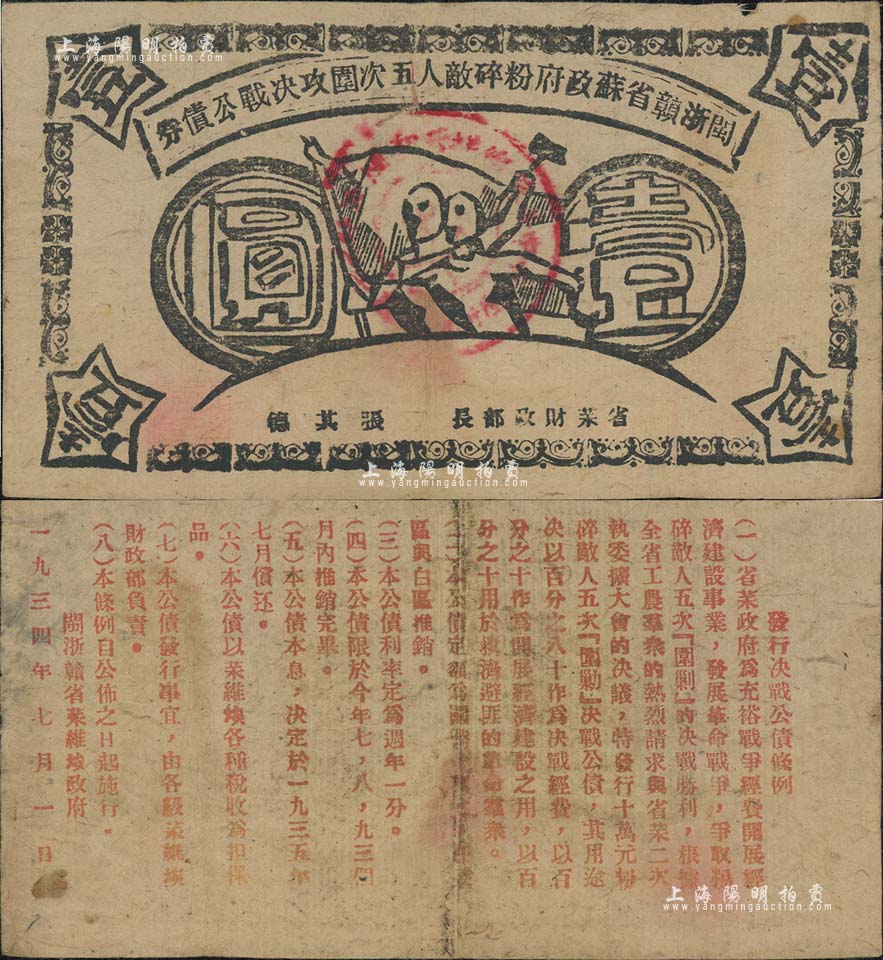 上海陽明拍賣
www.yangmingauction.com
壹
壹
閩浙贛省蘇政府粉碎敵人五次圍攻决戰公債券
壹
圓
省蘇財政部長 張其德
壹
壹
上海陽明拍賣
www.yangmingauction.com
發行决戰公債條例
(一)省苏政府為充裕戰爭經費開展經
濟建設事業,發展革命戰爭,爭取粉
碎敵人五次『圍剿』的决戰勝利,根據
全省工農羣衆的熱烈請求與省苏二次
執委擴大會的决議,特發行十萬元粉
碎敵人五次『圍勦』决戰公債,其用途
决以百分之八十作為决戰經費,以百
分之十作為開展經濟建設之用,以百
分之十用於救濟避匪的革命羣衆。
(二)本公債定額為國幣
區與白區推銷。
(三)本公債利率定為週年一分。
(四)本公債限於今年七,八,九三個
月內推銷完畢。
(五)本公債本息,决定於一九三五年
七月償还。
(六)本公債以苏維埃各種税收為担保
品。
(七)本公債發行事宜,由各級苏維埃
財政部負責。
(八)本條例自公佈之日起施行。
閩浙贛省苏維埃政府
一九三四年七月一日
上海陽明拍賣
www.yangmingauction.com